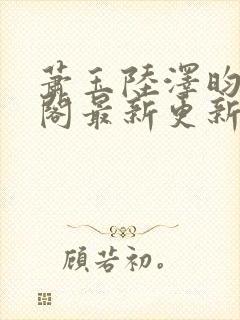 萧玉陆泽昀
阁最新更新
顾若初。